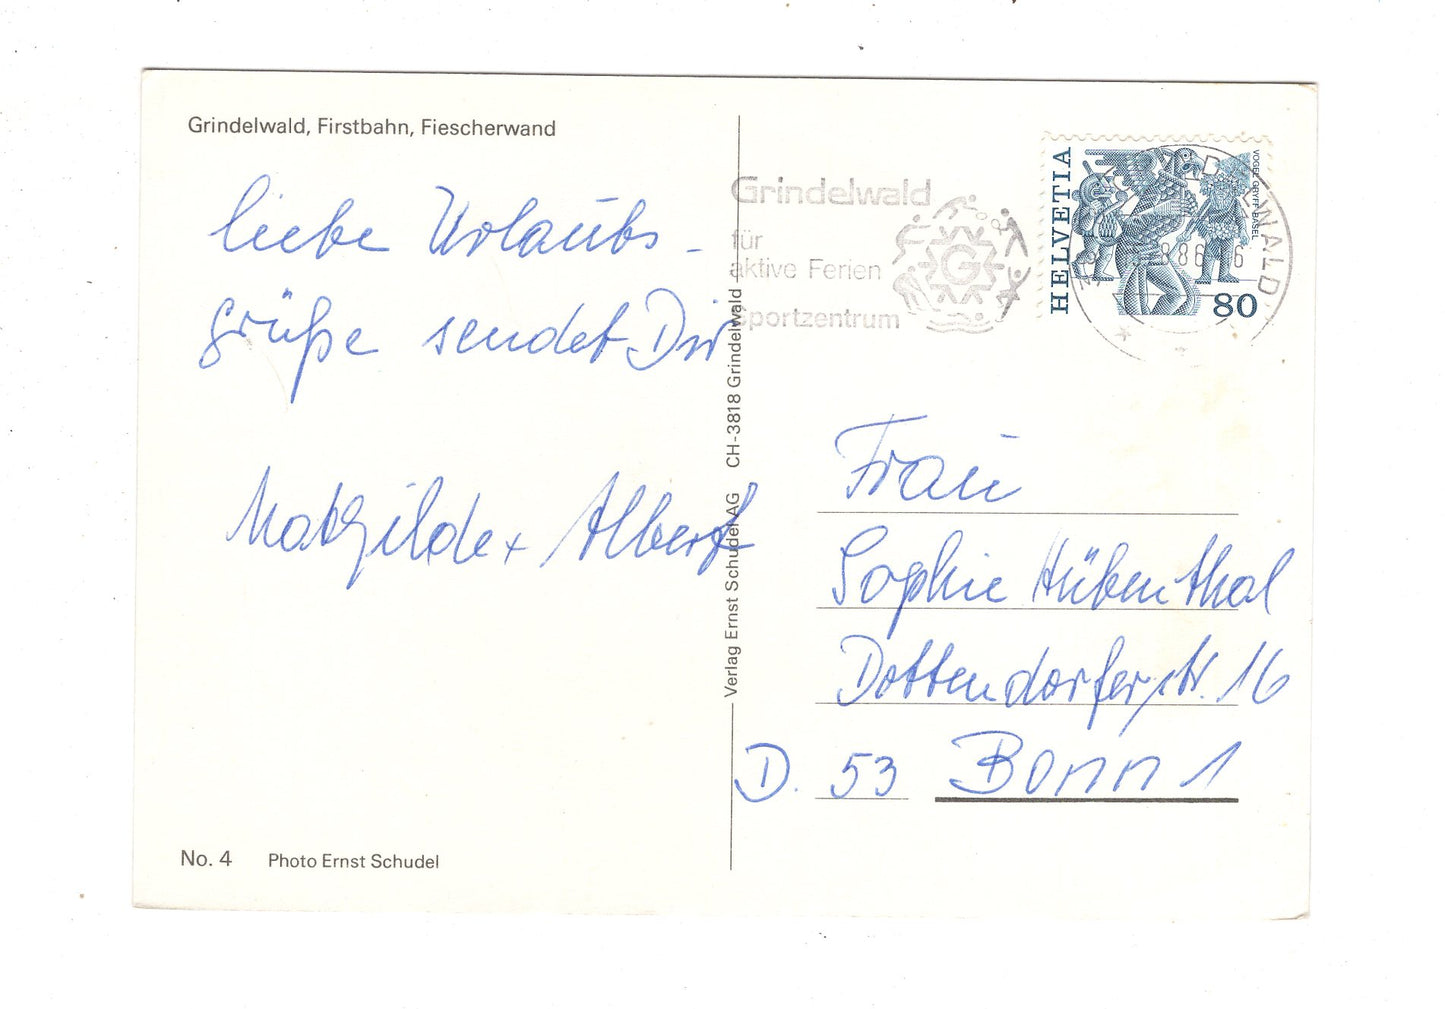 Grindelwald, Firstbahn, Fiescherwand
liebe Urlaubs-
grüße sendet Dir
Mathilde + Albert
No. 4 Photo Ernst Schudel
Verlag Ernst Schudel AG CH-3818 Grindelwald
Grindelwald
für
aktive Ferien
Sportzentrum
G
HELVETIA
VOGEL GRYFF BASEL
80
Frau
Sophie Hübenthal
Dottendorferstr. 16
D. 53 Bonn 1